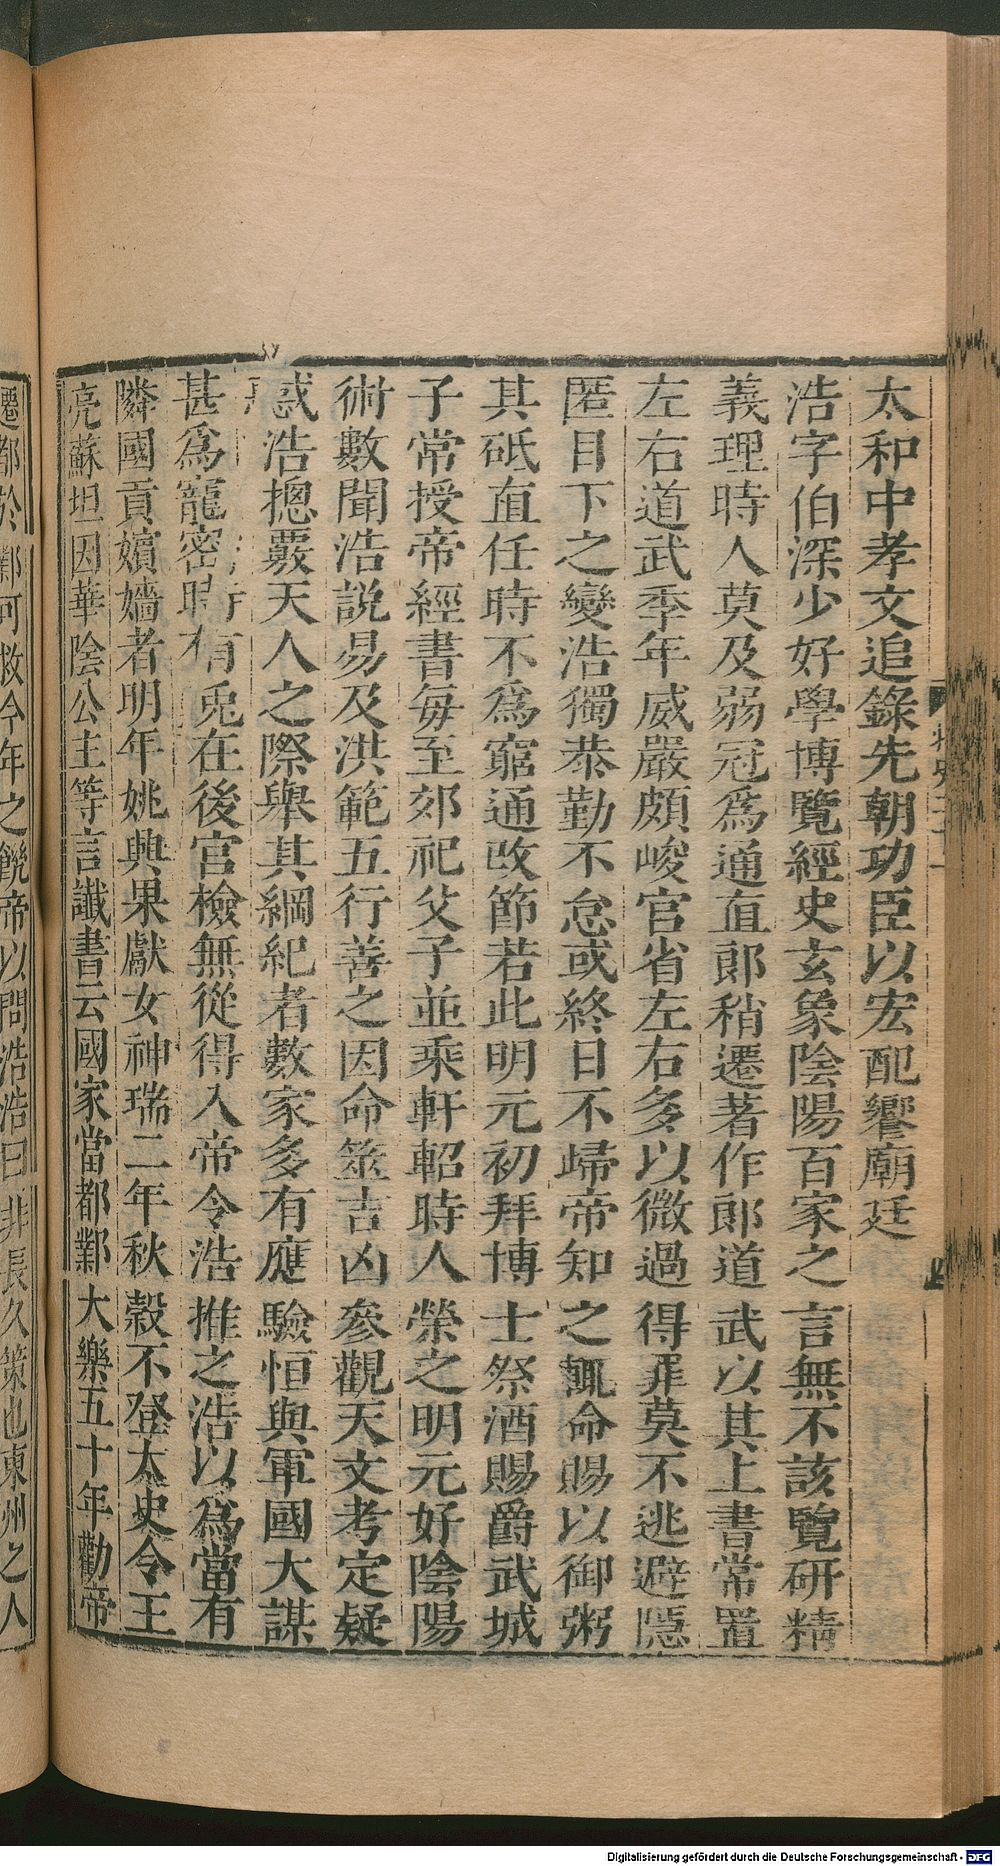 太和中孝文追錄先朝功臣以宏配饗廟廷
浩字伯深少好學博覽經史玄象陰陽百家之言無不該覽研精
義理時人莫及弱冠爲通直郎稍遷著作郎道武以其工書常置
左右道武季年威嚴頗峻官省左右多以微過得罪莫不逃避隱
匿目下之變浩獨恭勤不怠或終日不歸帝知之輒命賜以御粥
其砥直任時不爲窮通改節若此明元初拜博士祭酒賜爵武城
子常授帝經書每至郊祀父子並乘軒軺時人榮之明元好陰陽
術數聞浩說易及洪範五行善之因命筮吉凶參觀天文考定疑
惑浩摠覈天人之際舉其綱紀者數家多有應驗恒與軍國大謀
甚爲寵密時有兎在後官檢無從得入帝令浩推之浩以爲當有
隣國貢嬪嬙者明年姚興果獻女神瑞二年秋穀不登太史令王
亮蘇坦因華陰公主等言讖書云國家當都鄴大樂五十年勸帝
遷都於鄴可救今年之饑帝以問浩浩曰非長久策也東州之人
Digitalisierung gefördert durch die Deutsche Forschungsgemeinschaft - DFG